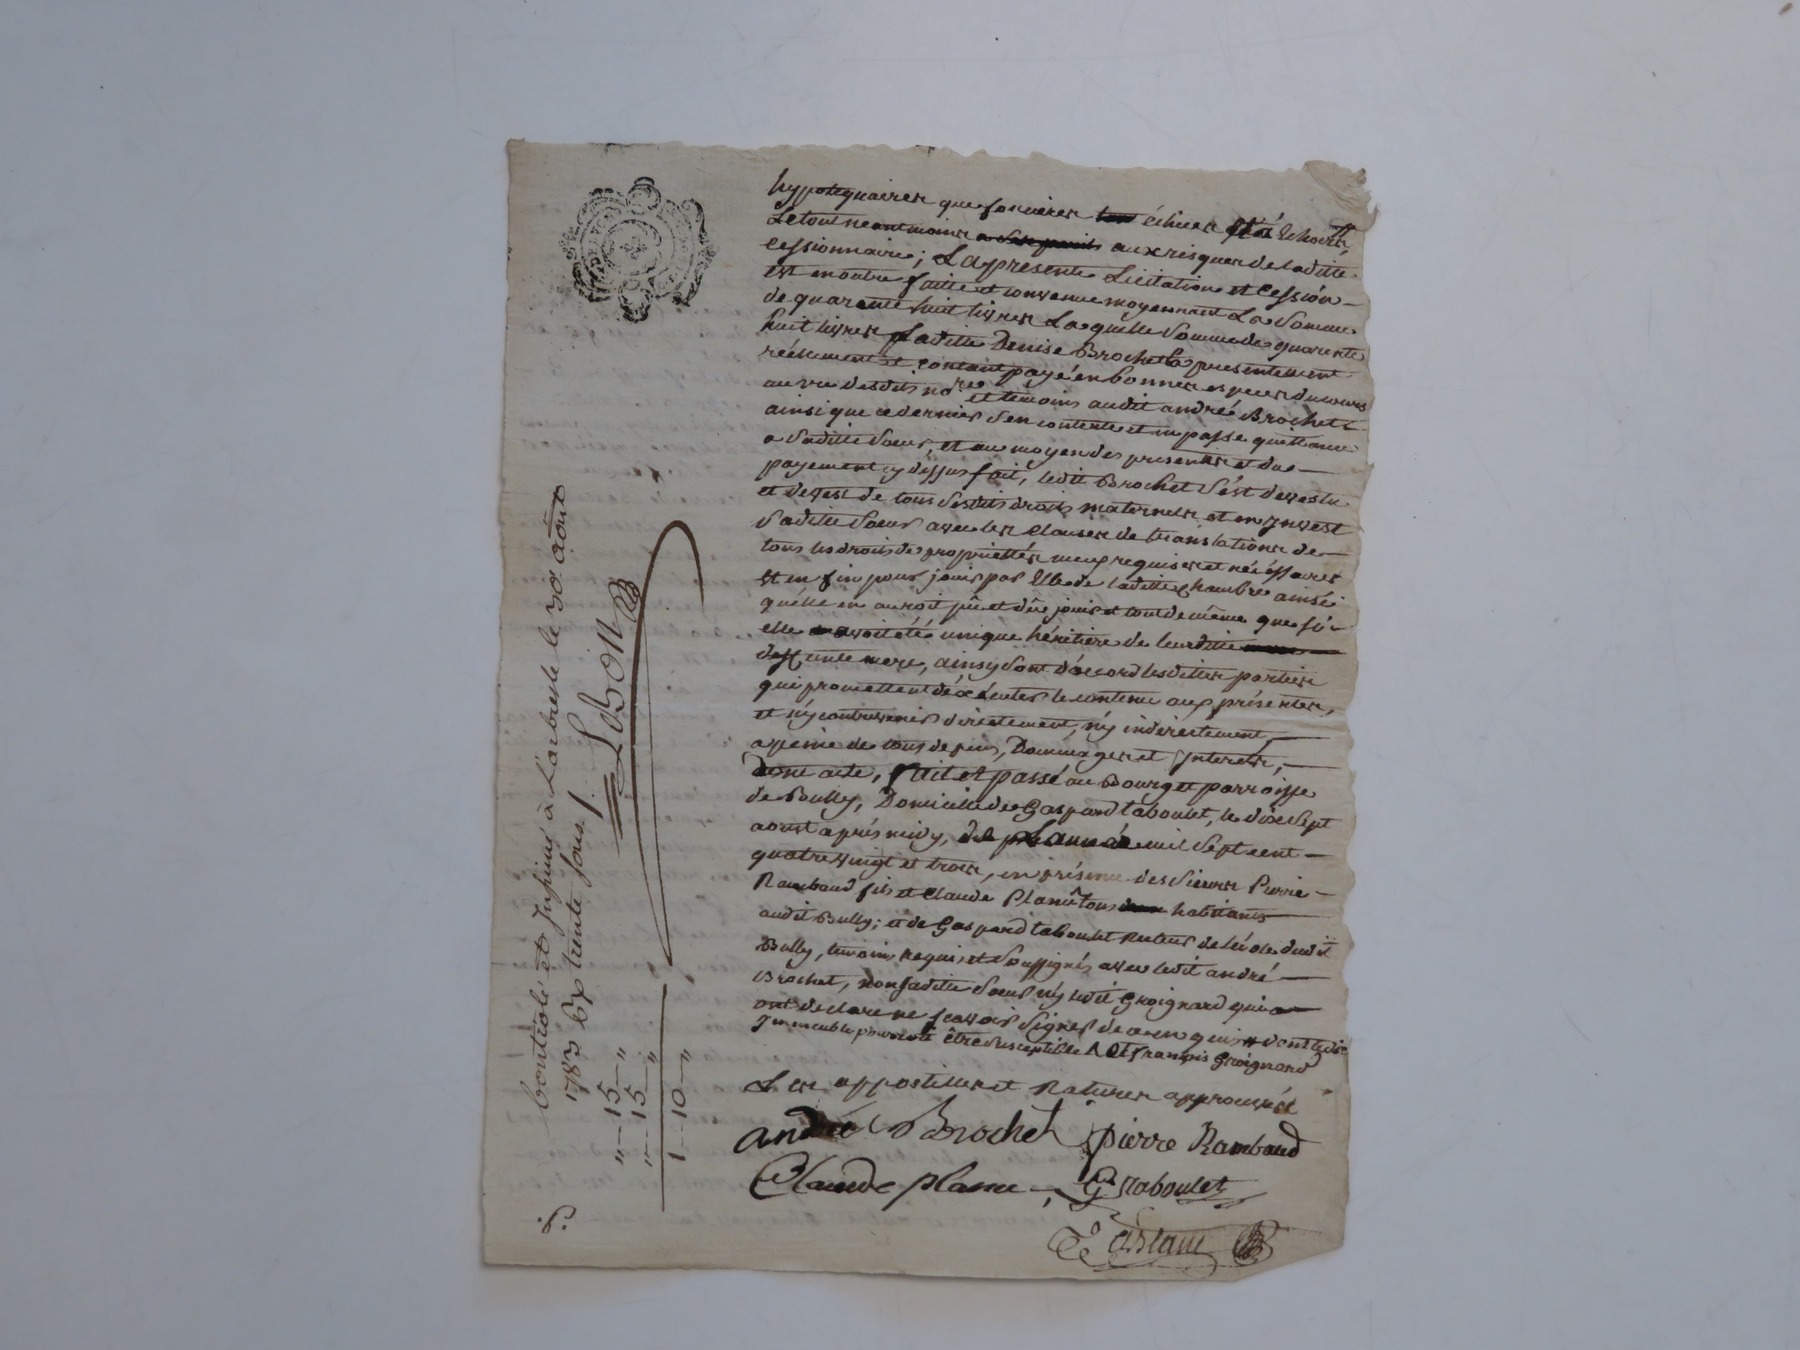 hypotequaires que foncieres échues et à Echoir,
Le tout neantmoins aux risques de laditte
Cessionnaire; La presente Licitation et Cession
est en outre faitte et convenue moyennant La Somme
de quarante huit livres Laquelle Somme de quarente
huit livres Laditte Denise Brochet a presentement
réelement et contant payé en bonnes especes du cours
au vû desdits nores et temoins audit andré Brochet
ainsi que ce dernier s'en contente et en passe quittance
a Saditte Soeur, et au moyen des presentes et du
payement cy dessus fait, ledit Brochet s'est devestu
et devest de tous Sesdits droits maternels et en ynvest
Saditte Soeur avec les Clauses de translations de
tous les droits de propriettés neux requises et nécéssaires
et en fin pour jouir par Elle de laditte chambre ainsi
quelle en auroit pû et dû jouir et tout de même que si
elle avoit été unique héritiere de leurditte
deffunte mere, ainsy sont d'accord lesdittes parties
qui promettent déxécuter le contenu aux présentes,
et n'y contrevenir directement, n'y indirectement,
a peine de tous depens, Dommages et Interets,
dont acte, fait et passé au Bourg et parroisse
de Bully, Domicille de Gaspard taboulet, le dix sept
aoust aprés midy, de L'année mil sept cent
quatre vingt et trois, en présence des sieurs Pierre
Rambaud fils et Claude Planu tous habitants
audit Bully; et de Gaspard taboulet Recteur de lécole dudit
Bully, temoins requis et Soussignés avec ledit andré
Brochet, non saditte soeur n'y ledit Groignard qui
ont declaré ne sçavoir signer de ce enquis dont ledit
Immeuble pourroit être susceptible et françois Groignard
Les appostilles et Ratures approuvées
andré Brochet pierre Rambaud
Claude planu G Taboulet
Controlé et Insinué à Larbresle le 30 août
1783 trente sous LeBon
"—15—"
"—15—"
1—10—"